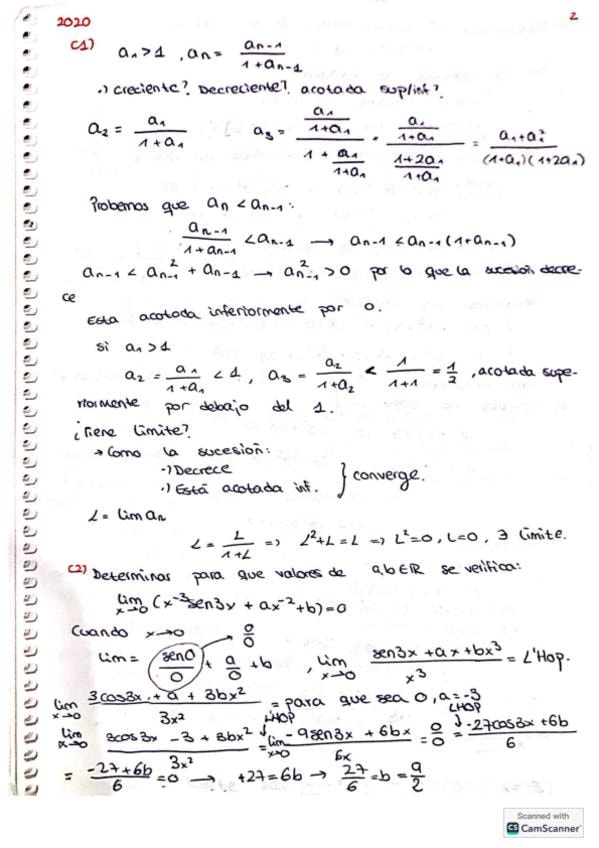 2020
2
C1) a₁ > 1, aₙ = aₙ₋₁ / (1 + aₙ₋₁)
·) Creciente? Decreciente? acotada sup/inf?
a₂ = a₁ / (1 + a₁)   a₃ = (a₁/(1+a₁)) / (1 + a₁/(1+a₁)) = (a₁/(1+a₁)) / ((1+2a₁)/(1+a₁)) = (a₁ + a₁²) / ((1+a₁)(1+2a₁))
Probemos que aₙ < aₙ₋₁:
aₙ₋₁ / (1 + aₙ₋₁) < aₙ₋₁ → aₙ₋₁ < aₙ₋₁(1 + aₙ₋₁)
aₙ₋₁ < aₙ₋₁² + aₙ₋₁ → aₙ₋₁² > 0 por lo que la sucesión decre-
ce
Esta acotada inferiormente por 0.
si a₁ > 1
a₂ = a₁/(1+a₁) < 1, a₃ = a₂/(1+a₂) < 1/(1+1) = 1/2, acotada supe-
riormente por debajo del 1.
¿Tiene limite?
→ Como la sucesión:
·) Decrece
·) Está acotada inf. } converge.
L = lim aₙ
L = L/(1+L) => L² + L = L => L² = 0, L = 0, ∃ limite.
C2) Determinas para que valores de a,b∈ℝ se verifica:
lim x→0 (x⁻³ sen3x + ax⁻² + b) = 0
Cuando x→0   0/0
lim = sen0/0 + a/0 + b , lim x→0 (sen3x + ax + bx³) / x³ = L'Hop.
lim x→0 (3cos3x + a + 3bx²) / 3x² = para que sea 0, a = -3
L'HOP L'HOP
lim x→0 (3cos3x - 3 + 3bx²) / 3x² = lim x→0 (-9sen3x + 6bx) / 6x = 0/0 = (-27cos3x + 6b) / 6
= (-27 + 6b) / 6 = 0 → +27 = 6b → 27/6 = b = 9/2
Scanned with
CS CamScanner